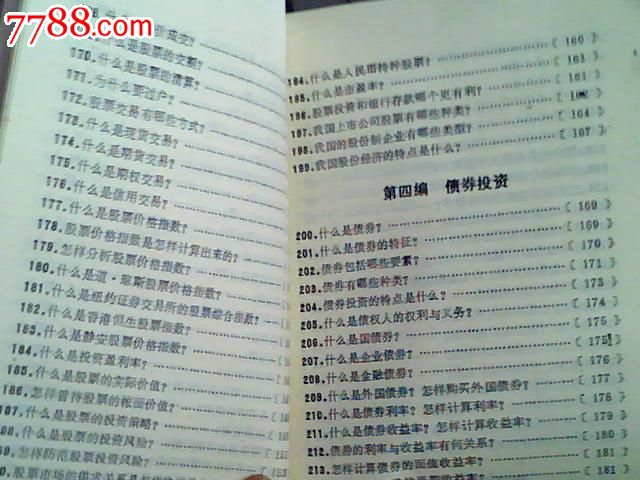 7788.com
169.什么是股票的交割?
170.什么是股票的清算?
171.为什么要过户?
172.股票交易有哪些方式?
173.什么是现货交易?
174.什么是期货交易?
175.什么是期权交易?
176.什么是信用交易?
177.什么是股票价格指数?
178.股票价格指数是怎样计算出来的?
179.怎样分析股票价格指数?
180.什么是道·琼斯股票价格指数?
181.什么是纽约证券交易所的股票综合指数?
182.什么是香港恒生股票指数?
183.什么是静安股票价格指数?
184.什么是投资盈利率?
185.什么是股票的实际价值?
186.怎样看待股票的帐面价值?
187.什么是股票的投资策略?
188.什么是股票的投资风险?
189.怎样防范股票投资风险? 〔153
194.什么是人民币特种股票? 〔160
195.什么是市盈率? 〔161
196.股票投资和银行存款哪个更有利? 〔161
197.我国上市公司股票有哪些种类? 〔
198.我国的股份制企业有哪些类型? 〔164
199.我国股份经济的特点是什么? 〔167
第四编 债券投资
200.什么是债券? 〔169
201.什么是债券的特征? 〔169
202.债券包括哪些要素? 〔170
203.债券有哪些种类? 〔171
204.债券投资的特点是什么? 〔173
205.什么是债权人的权利与义务? 〔174
206.什么是国债券? 〔175
207.什么是企业债券? 〔175
208.什么是金融债券? 〔176
209.什么是外国债券?怎样购买外国债券? 〔177
210.什么是债券利率?怎样计算利率? 〔179
211.什么是债券收益率?怎样计算收益率? 〔178
212.债券的利率与收益率有何关系? 〔180
213.怎样计算债券的面值收益率? 〔181